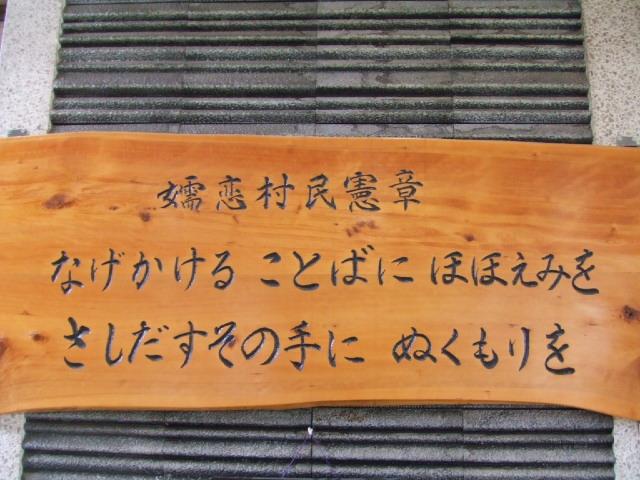 嬬恋村民憲章
なげかける ことばに ほほえみを
さしだすその手に ぬくもりを